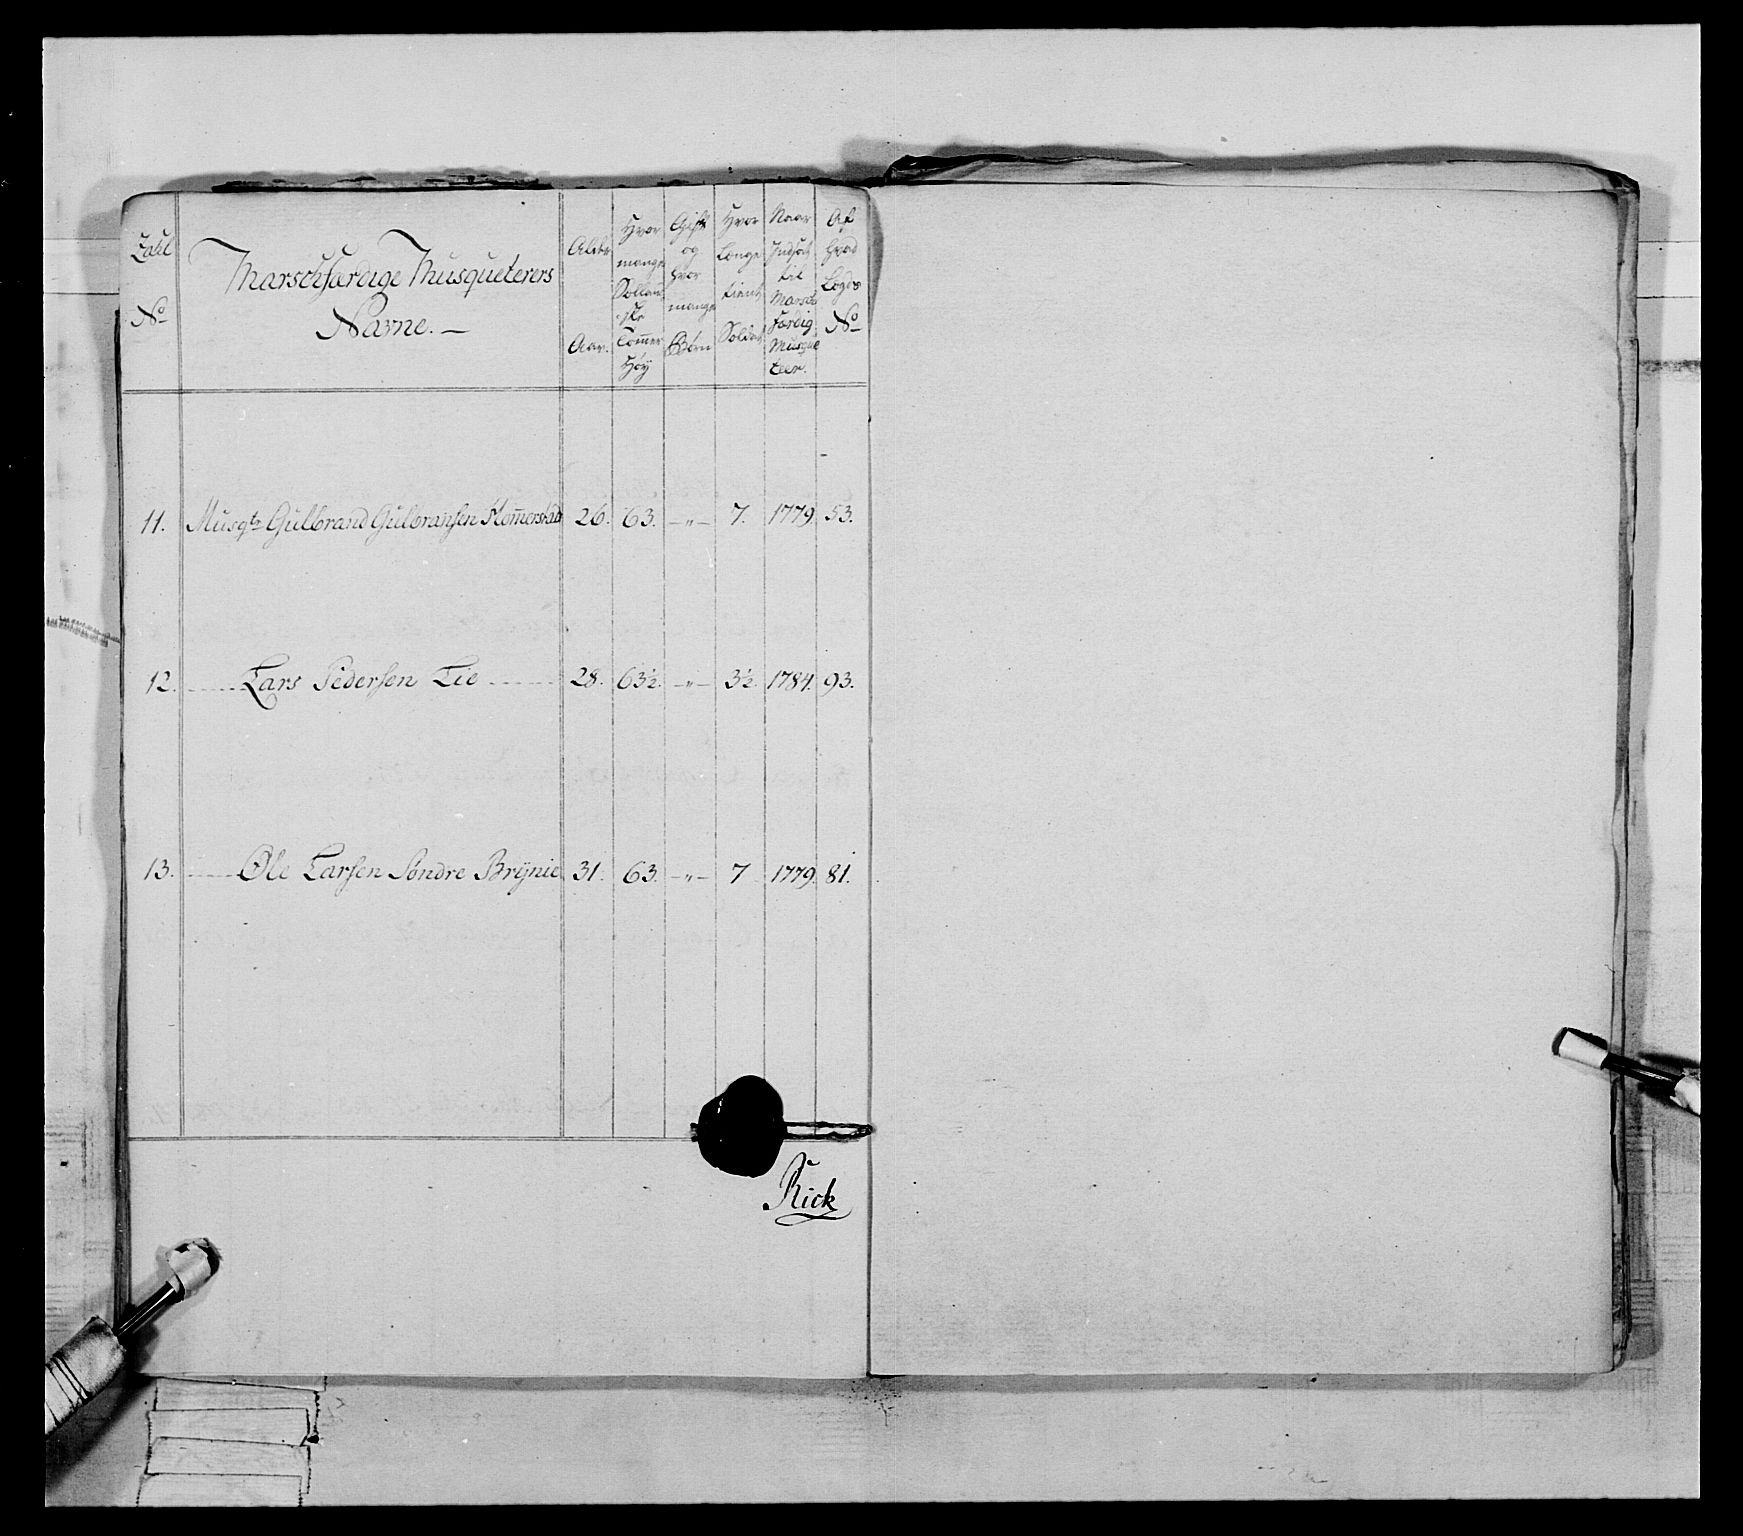 Zahl No
Marschfærdige Musqueterers
Navne. —
Alder Aar.
Hvor mange Sollanske Tom̄er Høy
Gift og hvor mange Børn
Hvor Længe tient Soldat
Naar Indsat til Marschfærdig Musqueteer.
Af hvad Lægds No
11. Musqtr Gulbrand Gulbransen Kom̄erstad 26. 63. —"— 7. 1779. 53.
12. Lars Pedersen Lie 28. 63½. —"— 3½. 1784. 93.
13. Ole Larsen Søndre Brÿnie 31. 63. —"— 7 1779. 81.
Rick